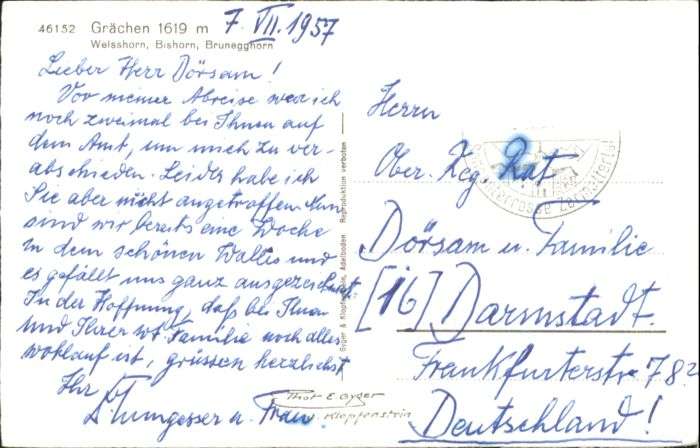 46152 Grächen 1619 m
Weisshorn, Bishorn, Brunegghorn
7. VII. 1957
Lieber Herr Dörsam!
Vor meiner Abreise war ich
noch zweimal bei Ihnen auf
dem Amt, um mich zu ver-
abschieden. Leider habe ich
Sie aber nicht angetroffen. Nun
sind wir bereits eine Woche
in dem schönen Wallis und
es gefällt uns ganz ausgezeichnet.
In der Hoffnung, daß bei Ihnen
und Ihrer Familie noch alles
wohlauf ist, grüssen herzlichst
Ihr
u. Frau
Gyger & Klopfenstein, Adelboden Reproduktion verboten
Phot E. Gyger
Klopfenstein
Herrn
Ober. Reg. Rat
Dörsam u. Familie
[16] Darmstadt.
Frankfurterstr. 78
Deutschland!